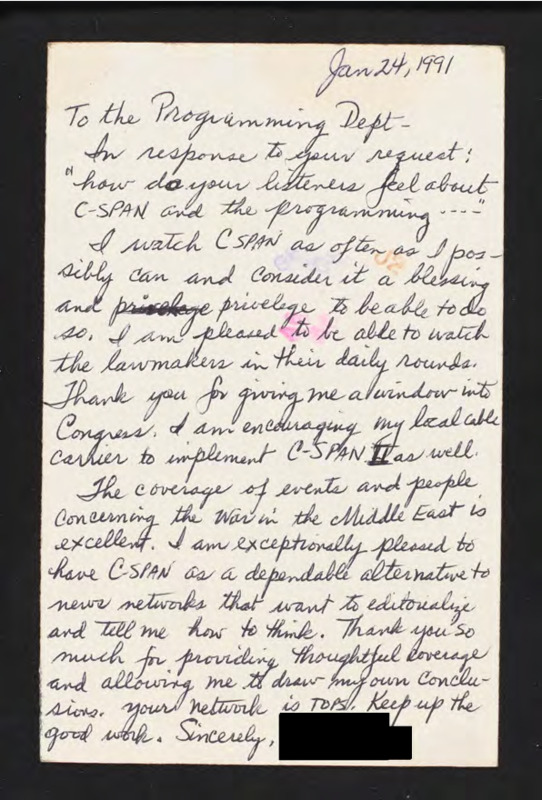 Jan 24, 1991
To the Programming Dept-
In response to your request:
"how do your listeners feel about
C-SPAN and the programming ----"
I watch CSPAN as often as I pos-
sibly can and consider it a blessing
and privelege to be able to do
so. I am pleased to be able to watch
the lawmakers in their daily rounds.
Thank you for giving me a window into
Congress. I am encouraging my local cable
carrier to implement C-SPAN II as well.
The coverage of events and people
concerning the War in the Middle East is
excellent. I am exceptionally pleased to
have C-SPAN as a dependable alternative to
news networks that want to editorialize
and tell me how to think. Thank you so
much for providing thoughtful coverage
and allowing me to draw my own conclu-
sions. Your network is TOPS. Keep up the
good work. Sincerely,